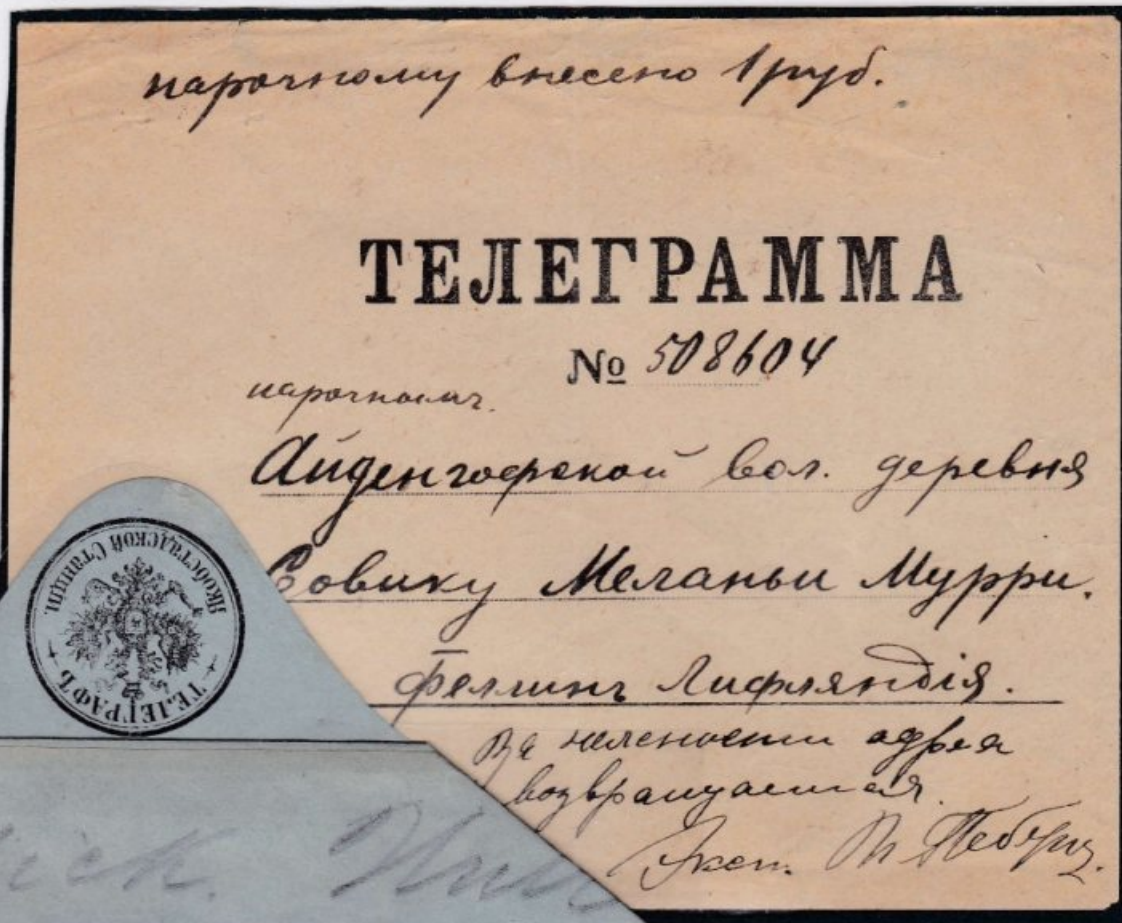 нарочному внесено 1 руб.
ТЕЛЕГРАММА
№ 508604
нарочнымъ.
Айденгофской вол. деревня
Совику Меланьи Мурри.
Феллинъ Лифляндія.
За неясностью адреса
возвращается.
Эксп.
ТЕЛЕГРАФЪ
ЯКОБСТАДСКОЙ СТАНЦІИ.